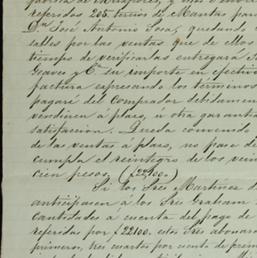 fabrica de Miraflores, y
referidos 205 tercios de Mantas para
Dn. José Antonio Sosa, quedando
salles por las ventas que de ellos
tiempo de verificarlas entregará
Graves y Ca. su importe en efectivo
factura espresando los términos
pagaré del Comprador debitamen
vendieren á plazo, ú otra garantia
satisfaccion. Queda convenido
de las ventas á plazo, no pase de
cumpla el reintegro de los vein
cien pesos, (22100.)
Si los Sres Martinez
anticipasen á los Sres Graham
cantidades á cuenta del pago de
referidos por 22100. estos Sres abonar
primeros, tres cuartos por ciento de premi